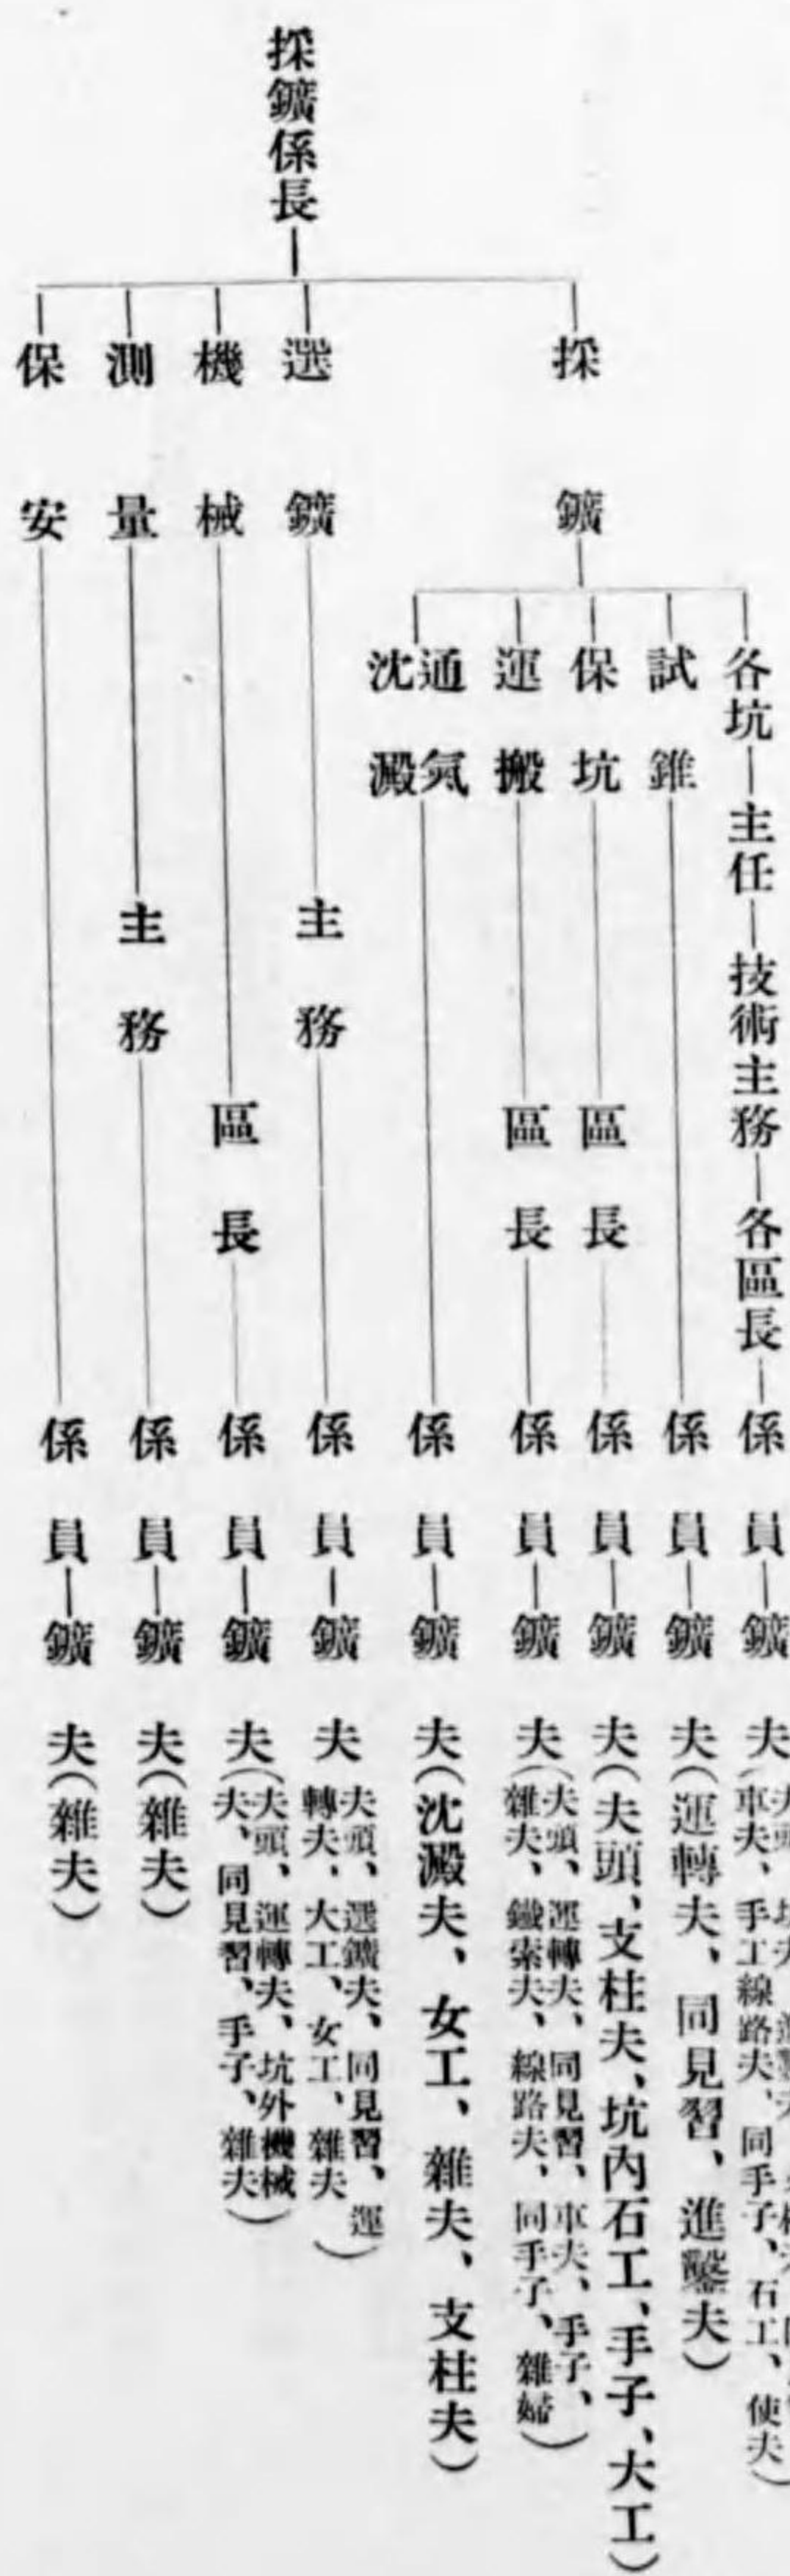 採鑛係長
採鑛
各坑―主任―技術主務―各區長―係員―鑛夫
車夫、手工線路夫、同手子、石工、使夫)
試錐 係員―鑛夫(運轉夫、同見習、進鑿夫)
保坑 區長 係員―鑛夫(夫頭、支柱夫、坑內石工、手子、大工)
運搬 區長 係員―鑛夫(夫頭、運轉夫、同見習、車夫、手子、
雜夫、鐵索夫、線路夫、同手子、雜婦)
通氣
沈澱 係員―鑛夫(沈澱夫、女工、雜夫、支柱夫)
選鑛 主務 係員―鑛夫 夫頭、選鑛夫、同見習、運
轉夫、大工、女工、雜夫)
機械 區長 係員―鑛夫(夫頭、運轉夫、坑外機械
夫、同見習、手子、雜夫)
測量 主務 係員―鑛夫(雜夫)
保安 係員―鑛夫(雜夫)